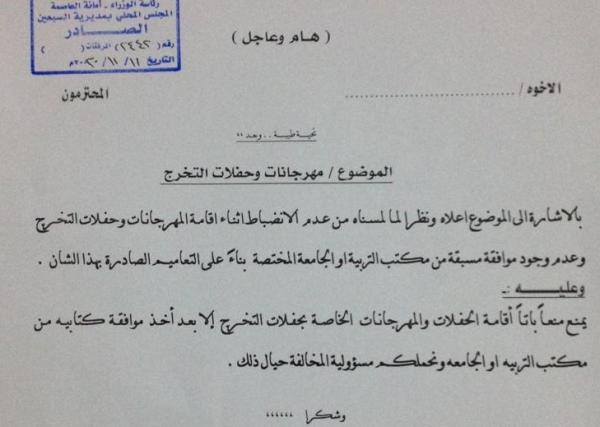 رئاسة الوزراء - أمانة العاصمة
المجلس المحلي بمديرية السبعين
الصادر
رقم (٢٤٤٢) المرفقات ( )
التاريخ ١١ / ١١ / ٢٠٢٠م
( هـام وعاجل )
الاخوه / ........................................ المحترمون
تحية طيبة .. وبعد ،،
الموضوع / مهرجانات وحفلات التخرج
بالاشارة الى الموضوع اعلاه ونظرا لما لمسناه من عدم الانضباط اثناء اقامة المهرجانات وحفلات التخرج
وعدم وجود موافقة مسبقة من مكتب التربية او الجامعة المختصة بناءً على التعاميم الصادرة بهذا الشان .
وعليـــه :ـ
يمنع منعاً باتاً أقامة الحفلات والمهرجانات الخاصة بحفلات التخرج إلا بعد أخذ موافقة كتابيه من
مكتب التربيه او الجامعه ونحملكم مسؤولية المخالفة حيال ذلك .
وشكرا ،،،،،،